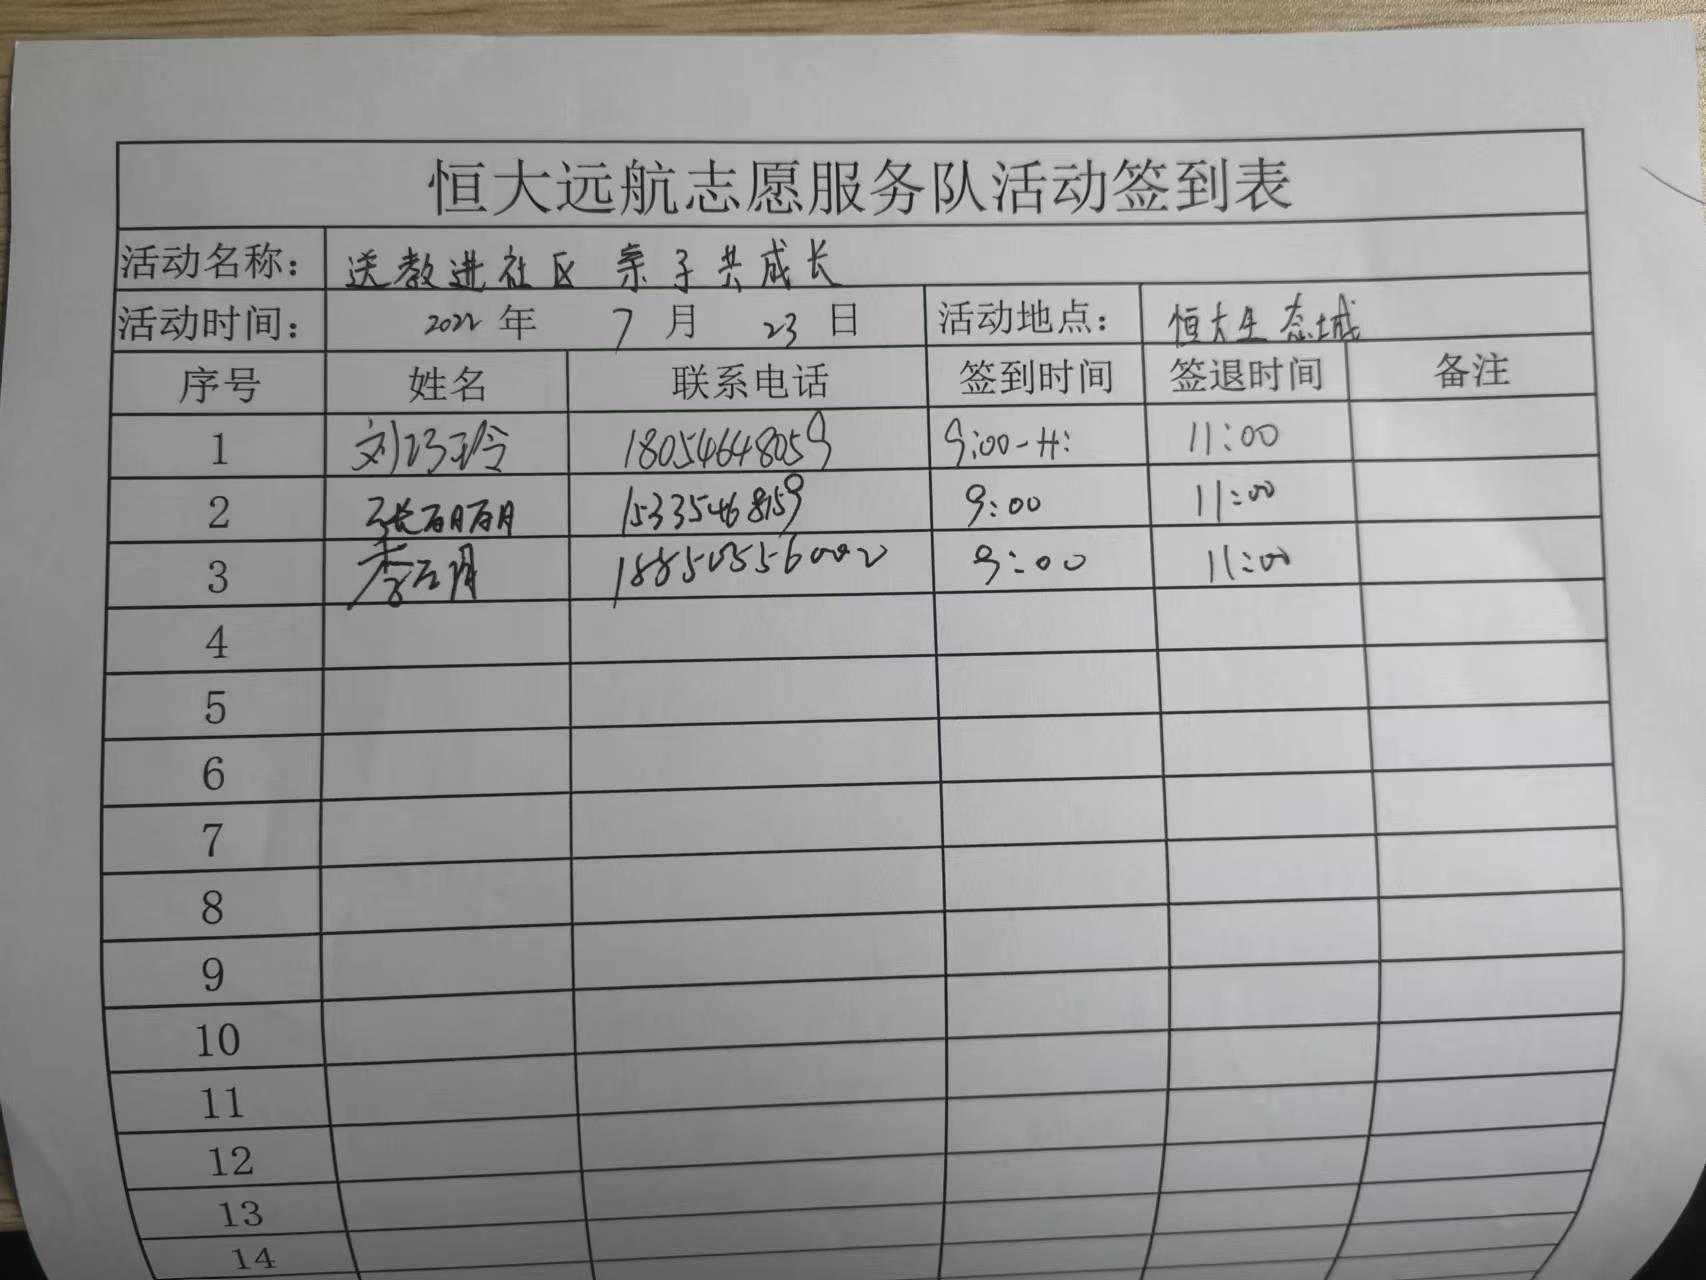 恒大远航志愿服务队活动签到表
活动名称： 送教进社区 亲子共成长
活动时间： 2022 年 7 月 23 日 活动地点： 恒大生态城
序号 姓名 联系电话 签到时间 签退时间 备注
1 刘巧玲 18054648059 9:00-H: 11:00
2 张明明 15335468159 9:00 11:00
3 9:00 11:00
4
5
6
7
8
9
10
11
12
13
14